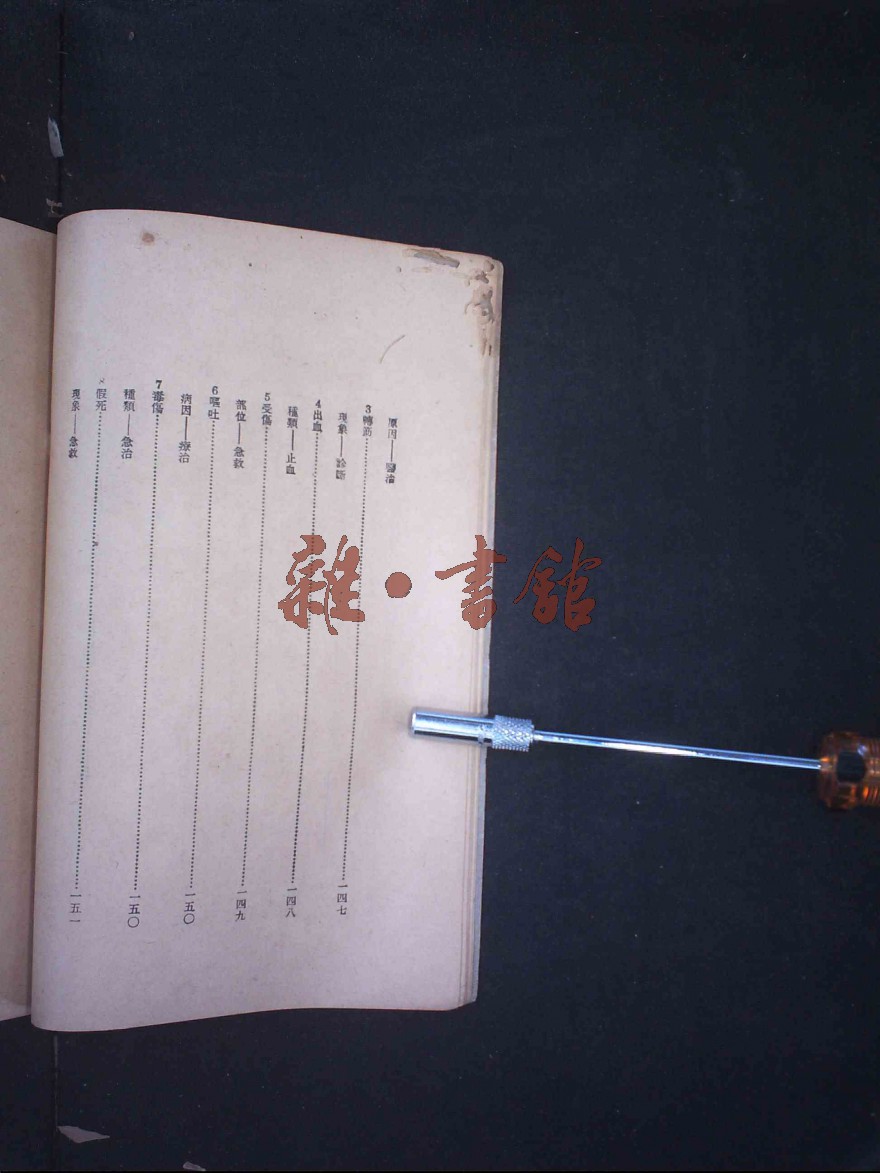 原因——醫治
3轉筋……一四七
現象——診斷
4出血……一四八
種類——止血
5受傷……一四九
部位——急救
6嘔吐……一五〇
病因——療治
7毒傷……一五〇
種類——急治
×假死……一五一
現象——急救
雜·書館